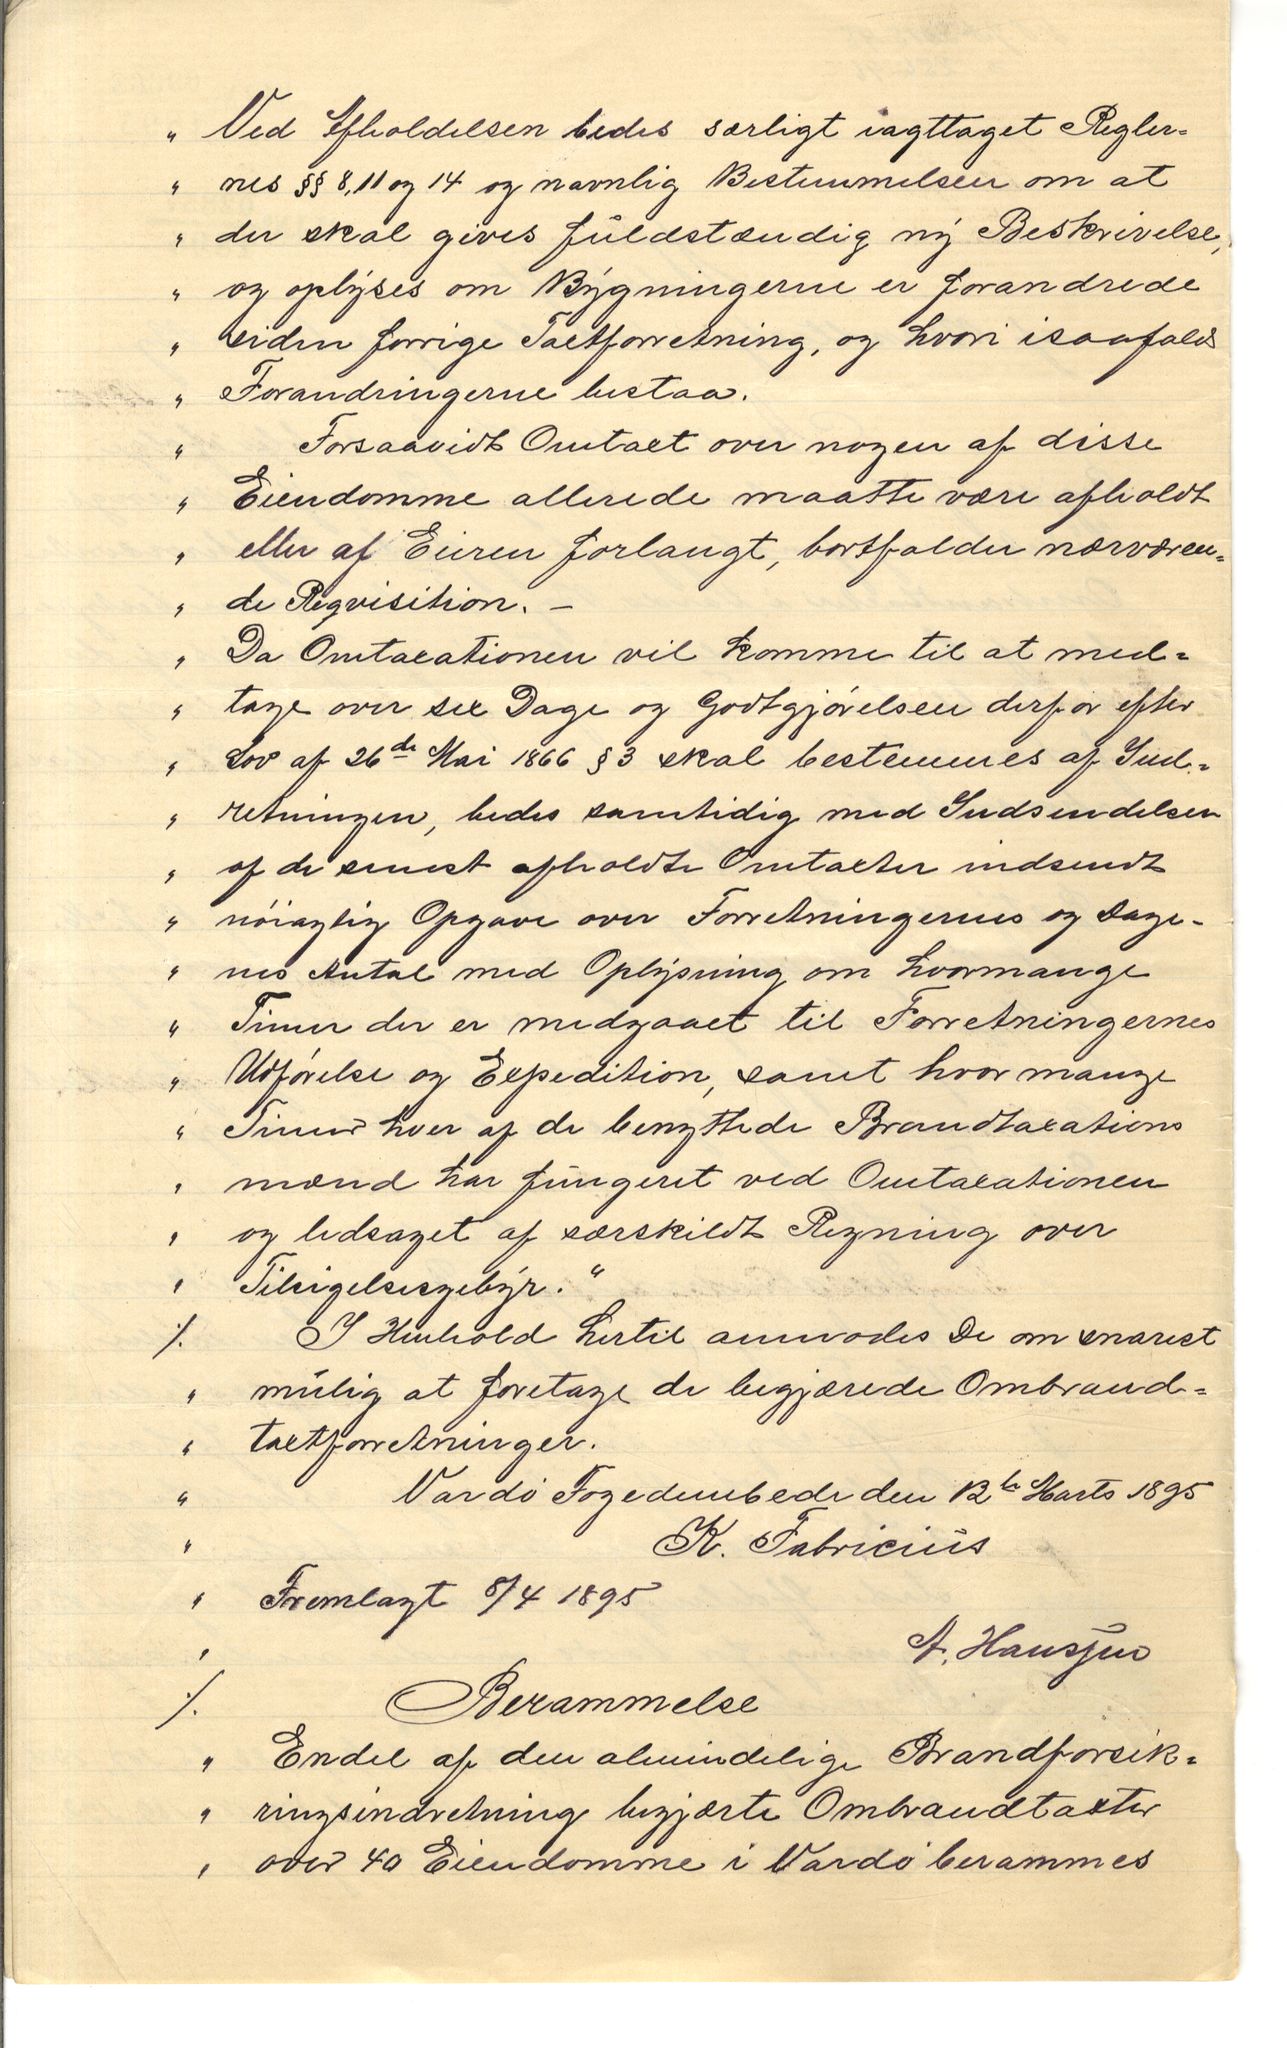 „ Ved Afholdelsen bedes særligt iagttaget Regler-
„ nes §§ 8, 11 og 14 og navnlig Bestemmelsen om at
„ der skal gives fuldstændig ny Beskrivelse,
„ og oplyses om Bygningerne er forandrede
„ siden forrige Taxtforretning, og hvori isaafald
„ Forandringerne bestaa.
„ Forsaavidt Omtaxt over nogen af disse
„ Eiendomme allerede maatte være afholdt
„ eller af Eieren forlangt, bortfalder nærværen-
„ de Reqvisition. —
„ Da Omtaxationen vil komme til at med-
„ tage over sex Dage og Godtgjørelsen derfor efter
„ Lov af 26de Mai 1866 § 3 skal bestemmes af Ind-
„ retningen, bedes samtidig med Indsendelsen
„ af de senest afholdte Omtaxter indsendt
„ nøiagtig Opgave over Forretningernes og Dage-
„ nes Antal med Oplysning om hvormange
„ Timer der er medgaaet til Forretningernes
„ Udførelse og Expedition, samt hvor mange
„ Timer hver af de benyttede Brandtaxations
„ mænd har fungeret ved Omtaxationen
„ og ledsaget af særskildt Regning over
„ Tilsigelsesgebyr.“
./. I Henhold hertil anmodes De om snarest
„ mulig at foretage de begjærede Ombrand-
„ taxtforretninger.
„ Vardö Fogedembede den 12te Marts 1895
„ K. Fabricius
„ Fremlagt 8/4 1895
„ A. Hansjen
./. Berammelse
„ Endel af den almindelige Brandforsik-
„ ringsindretning begjærte Ombrandtaxter
„ over 40 Eiendomme i Vardö berammes